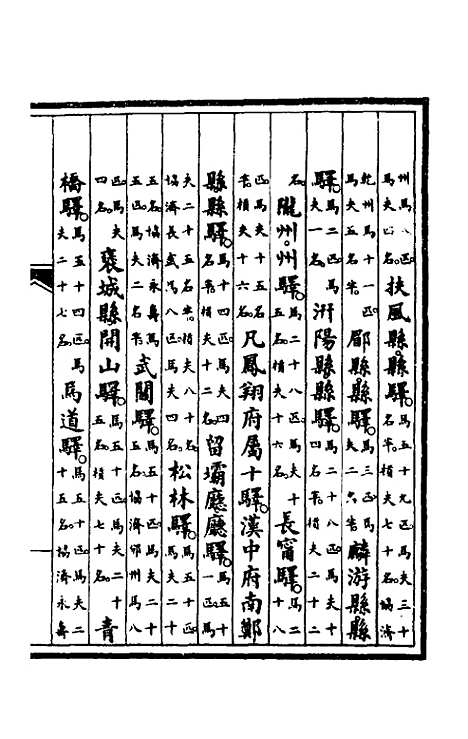 州馬八匹。馬夫四名。扶風縣縣驛。馬五十九匹。馬夫三十名半。槓夫七十名。協濟
乾州馬十一匹。馬夫五名半。郿縣縣驛。馬三匹。馬夫二名半。麟游縣縣
驛。馬二匹。馬夫一名。汧陽縣縣驛。馬二十八匹。馬夫十四名半。槓夫二十二
名。隴州州驛。馬二十八匹。馬夫十五名。槓夫十六名。長甯驛。馬二十八
匹。馬夫十五名半。槓夫十六名。凡鳳翔府屬十驛。漢中府南鄭
縣縣驛。馬十四匹。馬夫四名半。槓夫十二名。留壩廳廳驛。馬五十一匹。馬
夫二十五名半。槓夫八十名。協濟長武馬八匹。馬夫四名。松林驛。馬五十匹。馬夫二十
五名。協濟永壽馬五匹。馬夫二名半。武關驛。馬五十匹。馬夫二十五名。協濟邠州馬八
匹。馬夫四名。褒城縣開山驛。馬五十匹。馬夫二十五名。槓夫七十名。青
橋驛。馬五十四匹。馬夫二十七名。馬道驛。馬五十匹。馬夫二十五名。協濟永壽